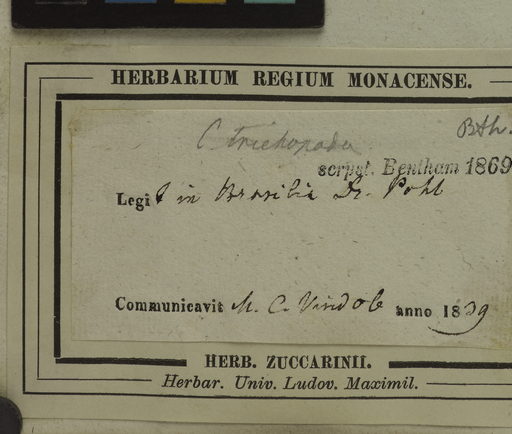 HERBARIUM REGIUM MONACENSE.
Bth.
C. trichopoda
scrpst. Bentham 1869
Legit in Brasilia Dr. Pohl
Communicavit M. C. Vindob anno 1839
HERB. ZUCCARINII.
Herbar. Univ. Ludov. Maximil.